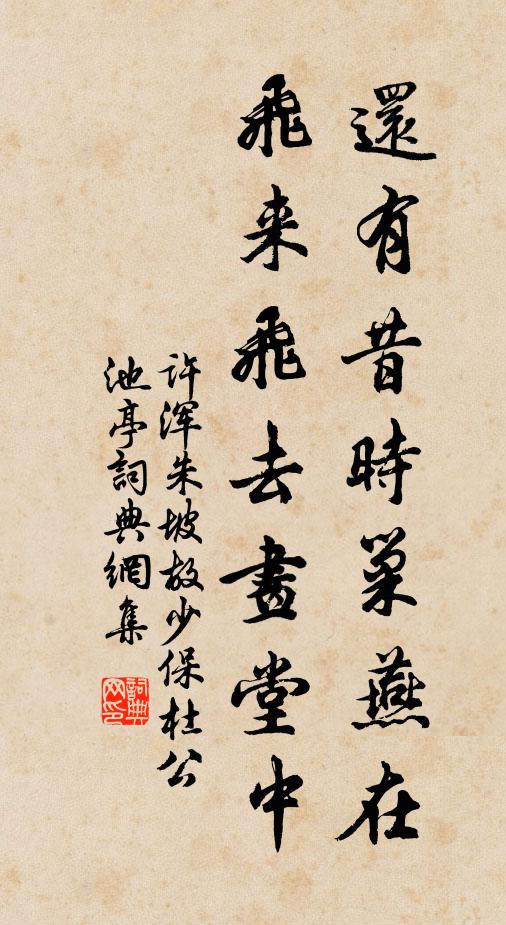 還有昔時巢燕在
飛来飛去畫堂中
许渾朱坡故少保杜公
池亭詞典網集
詞典网印